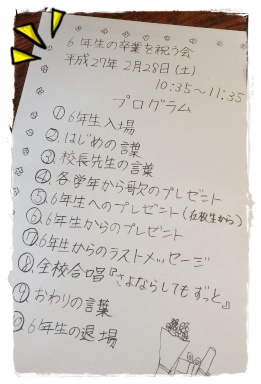 6年生の卒業を祝う会
平成27年 2月28日(土)
10:35～11:35
プログラム
①6年生入場
②はじめの言葉
③校長先生の言葉
④各学年から歌のプレゼント
⑤6年生へのプレゼント(在校生から)
⑥6年生からのプレゼント
⑦6年生からのラストメッセージ
⑧全校合唱『さよならしてもずっと』
⑨おわりの言葉
⑩6年生の退場